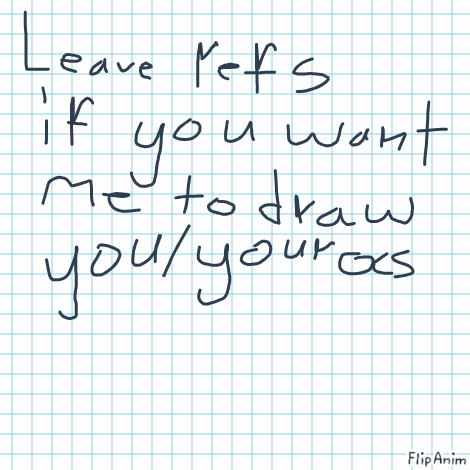 Leave refs
if you want
me to draw
you/your ocs
FlipAnim